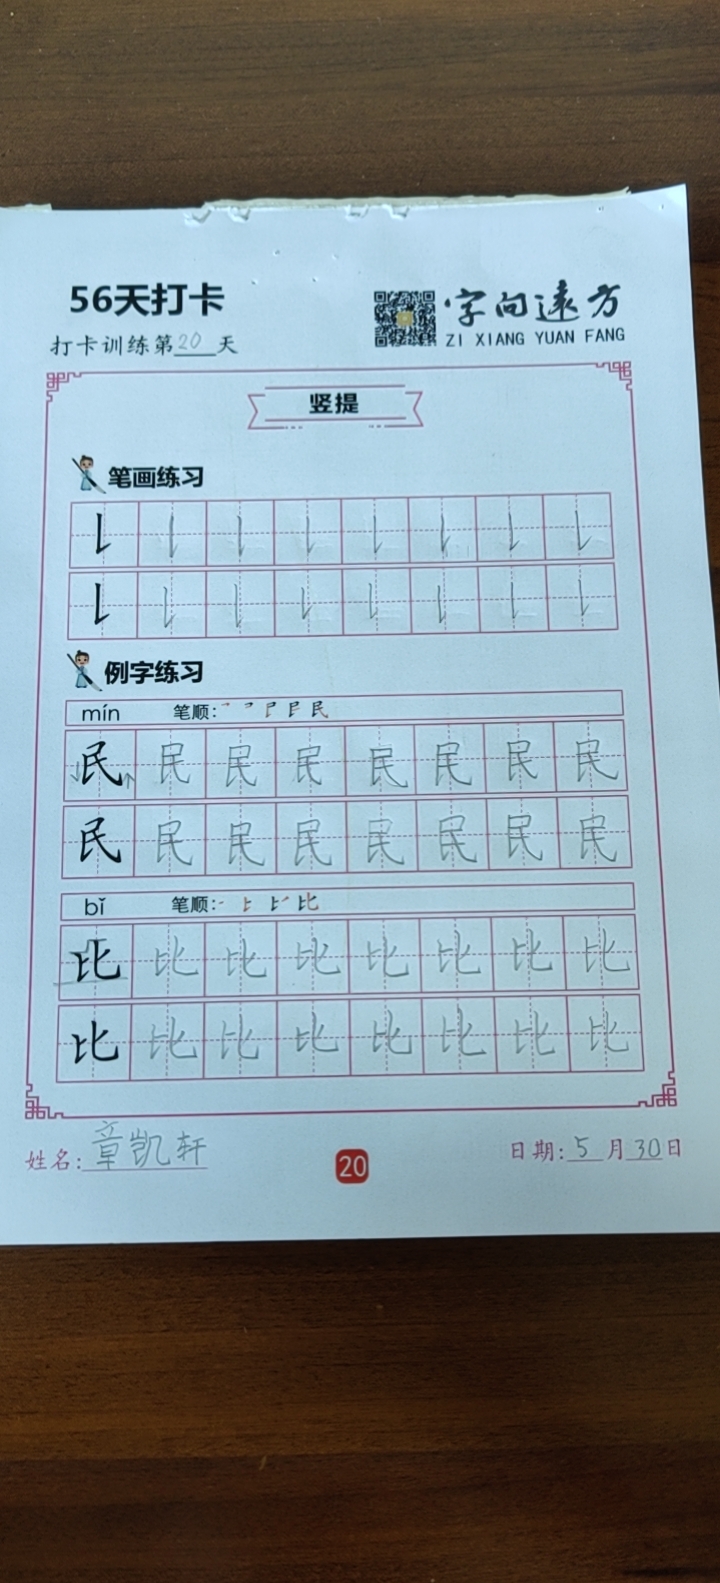 56天打卡
字向远方
ZI XIANG YUAN FANG
打卡训练第20天
竖提
笔画练习
例字练习
mín 笔顺: 民
民 民 民 民 民 民 民 民
民 民 民 民 民 民 民 民
bǐ 笔顺: 比
比 比 比 比 比 比 比 比
比 比 比 比 比 比 比 比
姓名: 章凯轩
20
日期: 5月30日